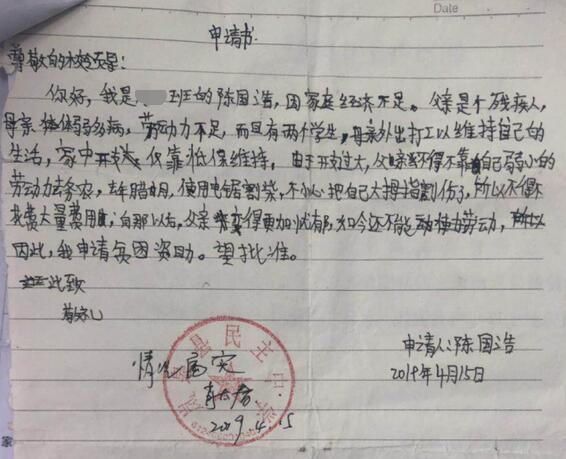 Date
申请书
尊敬的校领导:
你好,我是 班的陈国浩,因家庭经济不足。父亲是个残疾人,
母亲体弱多病,劳动力不足,而且有两个学生,母亲外出打工以维持自己的
生活,家中开支仅靠低保维持,由于开支过大,父亲不得不靠自己弱小的
劳动力去务农,去年腊月,使用电锯割柴,不小心把自己大拇指割伤了,所以不得不
花费大量费用,自那以后,父亲变得更加忧郁,如今还不能劳动,
因此,我申请贫困资助。望批准。
此致
敬礼
申请人:陈国浩
2019年4月15日
情况属实
2019.4.15
县民主中
家